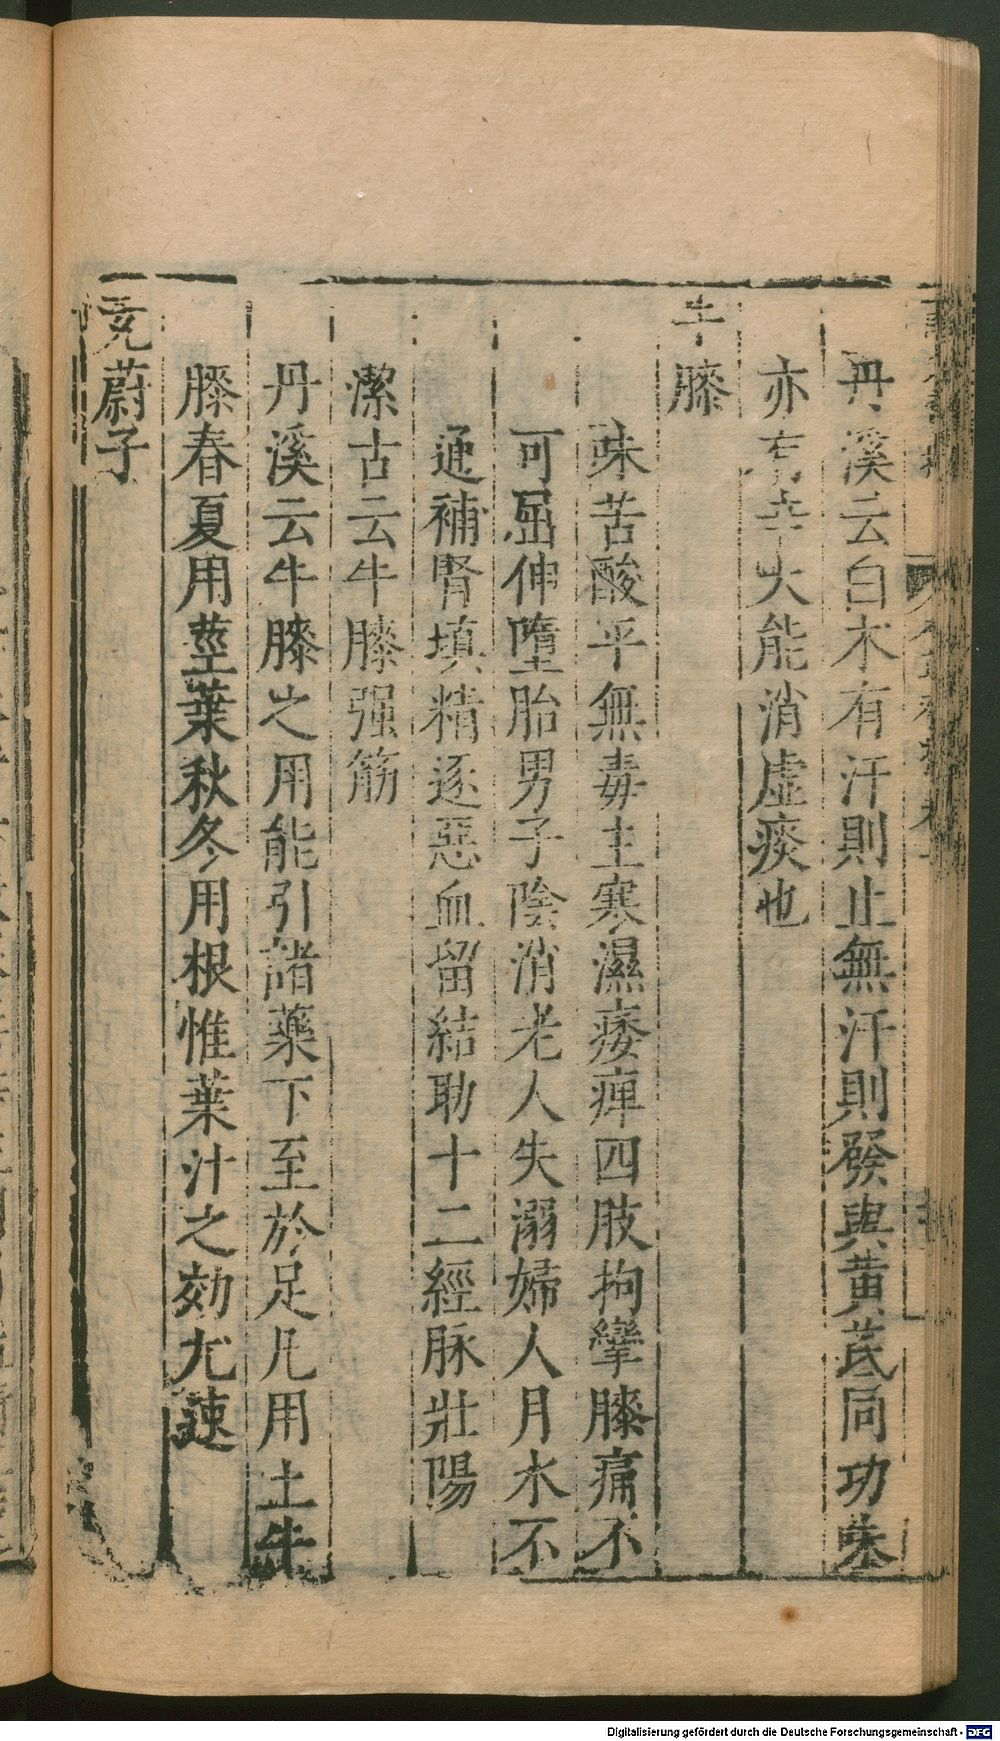 丹溪云白朮有汗則止無汗則發與黃芪同功朱
亦有辛大能消虛痰也
牛膝
味苦酸平無毒主寒濕痿痺四肢拘攣膝痛不
可屈伸墮胎男子陰消老人失溺婦人月水不
通補腎填精逐惡血留結助十二經脉壯陽
潔古云牛膝强筋
丹溪云牛膝之用能引諸藥下至於足凡用土牛
膝春夏用莖葉秋冬用根惟葉汁之効尤速
茺蔚子
Digitalisierung gefördert durch die Deutsche Forschungsgemeinschaft - DFG